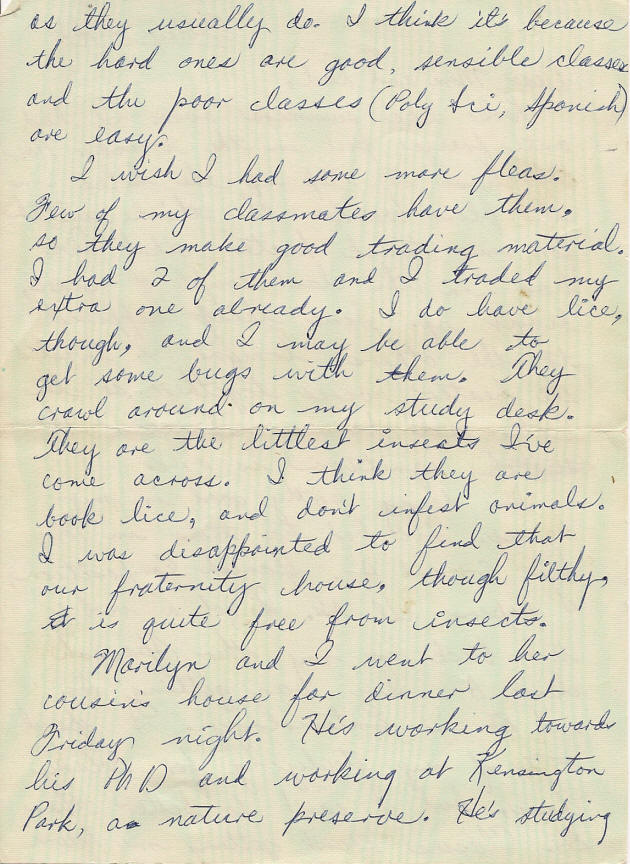 as they usually do. I think it's because
the hard ones are good, sensible classes
and the poor classes (Poly Sci, Spanish)
are easy.
I wish I had some more fleas.
Few of my classmates have them,
so they make good trading material.
I had 2 of them and I traded my
extra one already. I do have lice,
though, and I may be able to
get some bugs with them. They
crawl around on my study desk.
They are the littlest insects I've
come across. I think they are
book lice, and don't infest animals.
I was disappointed to find that
our fraternity house, though filthy,
is quite free from insects.
Marilyn and I went to her
cousin's house for dinner last
Friday night. He's working towards
his PhD and working at Kensington
Park, a nature preserve. He's studying